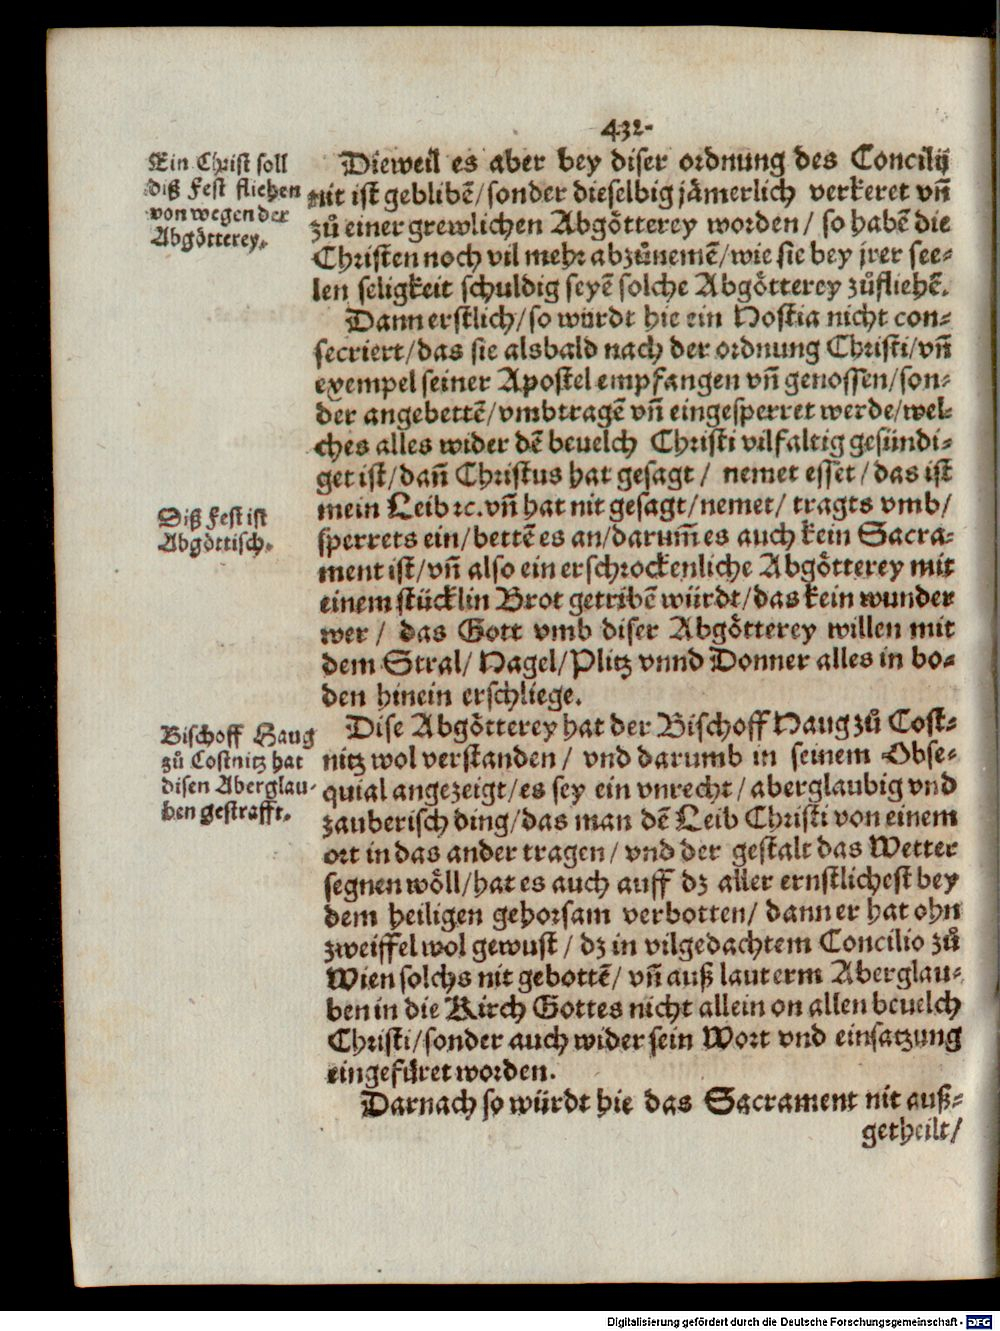 432.
Ein Christ soll
diß Fest fliehen
von wegen der
Abgötterey.
Dieweil es aber bey diser ordnung des Concilij
nit ist geblibẽ/sonder dieselbig jämerlich verkeret vñ
zů einer grewlichen Abgötterey worden/ so habẽ die
Christen noch vil mehr abzůnemẽ/wie sie bey jrer see⸗
len seligkeit schuldig seyẽ solche Abgötterey zůfliehẽ.
Dann erstlich/so würdt hie ein Hostia nicht con⸗
secriert/das sie alsbald nach der ordnung Christi/vñ
exempel seiner Apostel empfangen vñ genossen/son⸗
der angebettẽ/vmbtragẽ vñ eingesperret werde/wel⸗
ches alles wider dẽ beuelch Christi vilfaltig gesündi⸗
get ist/dañ Christus hat gesagt/ nemet esset/das ist
mein Leib ꝛc. vñ hat nit gesagt/nemet/ tragts vmb/
sperrets ein/bettẽ es an/darum̃ es auch kein Sacra⸗
ment ist/vñ also ein erschrockenliche Abgötterey mit
einem stücklin Brot getribẽ würdt/das kein wunder
wer/ das Gott vmb diser Abgötterey willen mit
dem Stral/ Hagel/Plitz vnnd Donner alles in bo⸗
den hinein erschliege.
Diß Fest ist
Abgöttisch.
Dise Abgötterey hat der Bischoff Haug zů Cost⸗
nitz wol verstanden/ vnd darumb in seinem Obse⸗
quial angezeigt/es sey ein vnrecht/aberglaubig vnd
zauberisch ding/das man dẽ Leib Christi von einem
ort in das ander tragen/ vnd der gestalt das Wetter
segnen wöll/hat es auch auff dz aller ernstlichest bey
dem heiligen gehorsam verbotten/ dann er hat ohn
zweiffel wol gewust/ dz in vilgedachtem Concilio zů
Wien solchs nit gebottẽ/ vñ auß lauterm Aberglau⸗
ben in die Kirch Gottes nicht allein on allen beuelch
Christi/sonder auch wider sein Wort vnd einsatzung
eingefüret worden.
Bischoff Haug
zů Costnitz hat
disen Aberglau⸗
ben gestrafft.
Darnach so würdt hie das Sacrament nit auß⸗
getheilt/
Digitalisierung gefördert durch die Deutsche Forschungsgemeinschaft - DFG